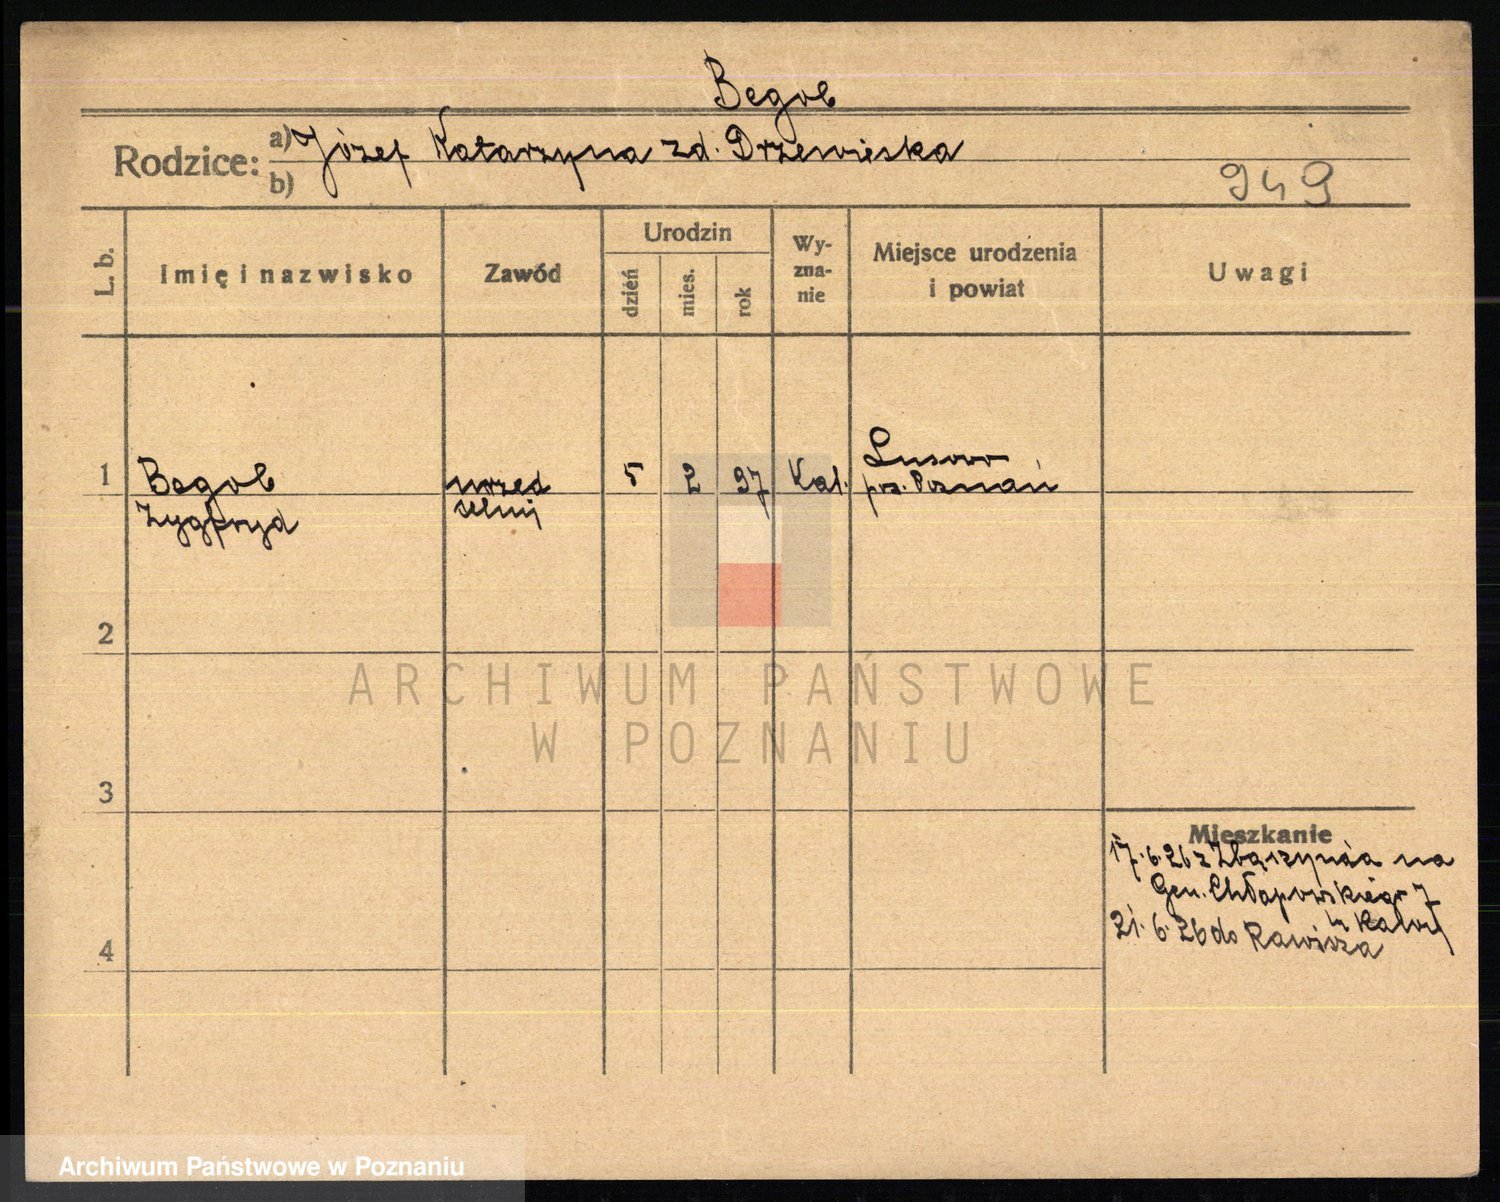 Begob
Rodzice: a) Józef Katarzyna zd. Drzewieska
b)
949
L. b.
Imię i nazwisko
Zawód
Urodzin
dzień
mies.
rok
Wy-
zna-
nie
Miejsce urodzenia
i powiat
Uwagi
1
Begob
Zygfryd
urzęd
celny
5
2
97
Kat.
Lusowo
pow. Poznań
2
ARCHIWUM PAŃSTWOWE
W POZNANIU
3
Mieszkanie
17.6.26 z Zbąszynia na
Gen. Chłapowskiego 7
21.6.26 do Rawicza
4
Archiwum Państwowe w Poznaniu